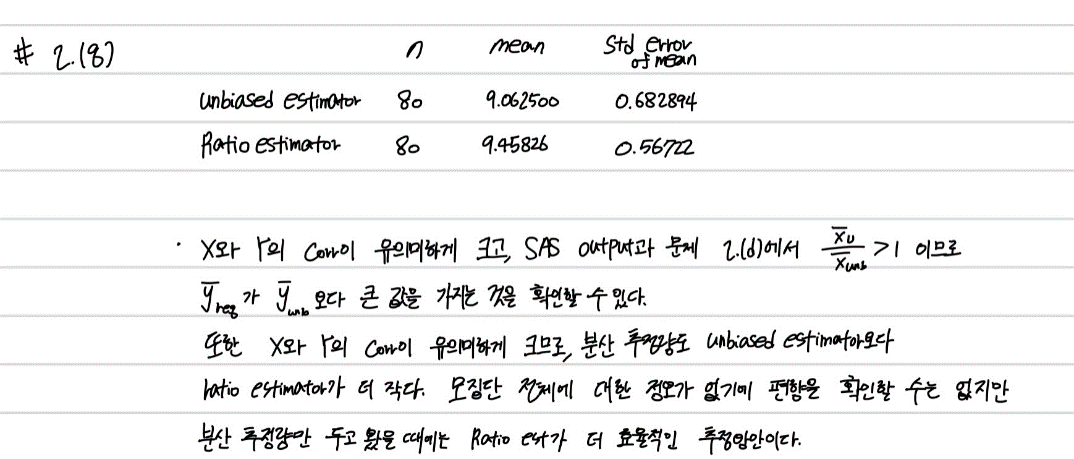 # 2.(8) n mean Std error of mean
unbiased estimator 80 9.062500 0.682894
Ratio estimator 80 9.45826 0.56722
· X와 Y의 Corr이 유의미하게 크고, SAS output과 문제 2.(d)에서 x̄_U / x̄_unb > 1 이므로
ȳ_reg가 ȳ_unb 보다 큰 값을 가지는 것을 확인할 수 있다.
또한 X와 Y의 Corr이 유의미하게 크므로, 분산 추정량도 unbiased estimator보다
ratio estimator가 더 작다. 모집단 전체에 대한 정보가 없기에 편향을 확인할 수는 없지만
분산 추정량만 두고 봤을 때에는 Ratio est가 더 효율적인 추정방안이다.